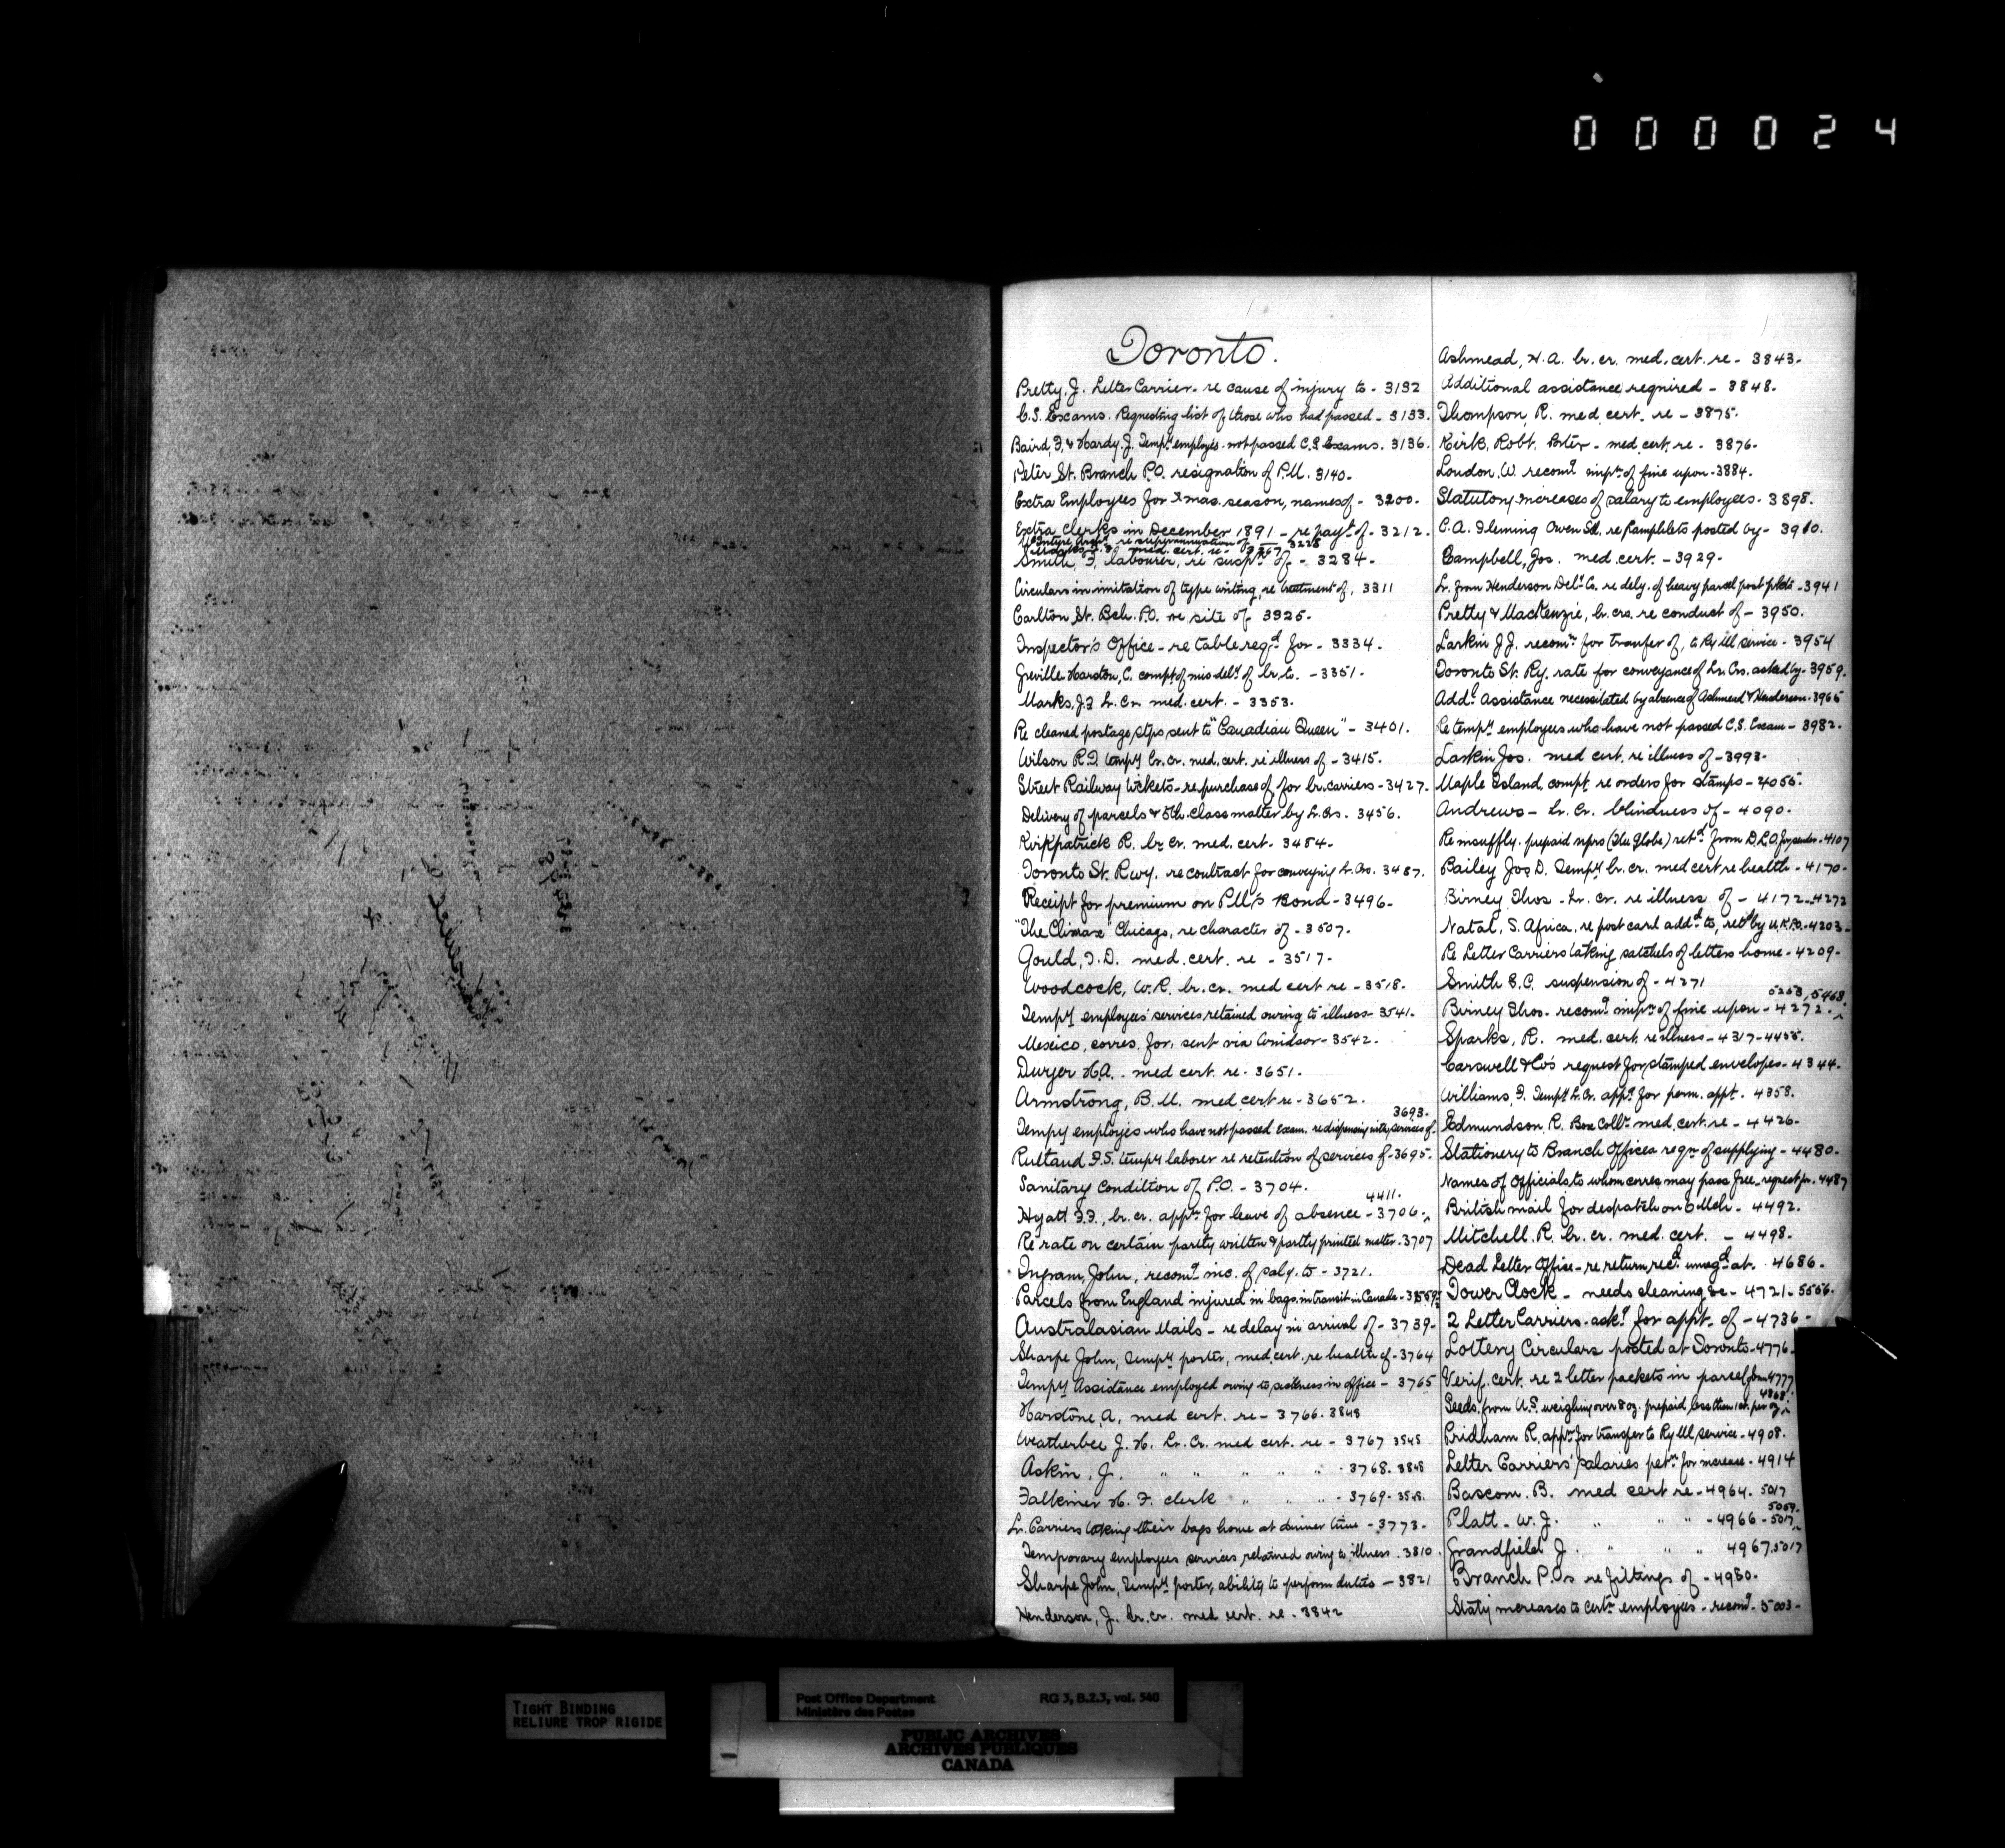 000024
Toronto.
Pretty, J. Letter Carrier - re cause of injury to - 3132
C.S. Exams. Requesting list of those who had passed - 3133.
Baird, F. & Hardy J. Tempy employés not passed C.S. Exams. 3136.
Peter St. Branch P.O. resignation of P.M. 3140-
Extra Employees for Xmas season, names of - 3200.
Extra Clerks in December 1891 - re payt of - 3212.
re superannuation of 3228
med. cert. re - 3267
Smith, F, labourer, re suspn of - 3284-
Circulars in imitation of type writing, re treatment of. 3311
Carlton St. Bch. P.O. re site of 3325-
Inspector's Office - re table reqd for - 3334.
Greville Harston, C. compt of mis dely of lr. to. - 3351.
Marks, J.F Lr. Cr. med. cert. - 3353.
Re cleaned postage stps sent to "Canadian Queen" - 3401.
Wilson R.D. tempy lr. cr. med. cert. re illness of - 3415-
Street Railway tickets - re purchase of for lr. carriers - 3427.
Delivery of parcels & 5th class matter by Lr. Crs. 3456.
Kirkpatrick R. lr. cr. med. cert. 3484-
Toronto St. Rwy. re contract for conveying Lr. Crs. 3487.
Receipt for premium on P.M's Bond - 3496-
"The Climax" Chicago, re character of - 3507-
Gould, F.D. med. cert. re - 3517-
Woodcock, W.R. lr. cr. med cert re - 3518-
Tempy employees' services retained owing to illness - 3541-
Mexico, corres. for, sent via Windsor - 3542-
Dwyer H.A. - med cert. re - 3651.
Armstrong, B.M. med cert re - 3652.
3693.
Tempy employés who have not passed exam. re dispensing with services of-
Rutland F.S. tempy laborer re retention of services of - 3695-
Sanitary Condition of P.O. - 3704.
4411.
Hyatt F.F., lr. cr. appn for leave of absence - 3706-
Re rate on certain partly written & partly printed matter. 3707
Ingram, John, recomd inc. of saly. to - 3721.
Parcels from England injured in bags in transit in Canada -
Australasian Mails - re delay in arrival of - 3739-
Sharpe John, tempy porter, med. cert. re health of - 3764
Tempy Assistance employed owing to sickness in office - 3765
Hardone, A, med cert. re - 3766. 3848
Weatherbee J.H. Lr. Cr. med cert. re - 3767 3848
Askin, J. " " " " " - 3768. 3848
Falkiner H.F. clerk " " " - 3769- 3848.
Lr. Carriers taking their bags home at dinner time - 3773-
Temporary employees services retained owing to illness. 3810.
Sharpe John, tempy porter, ability to perform duties - 3821
Henderson, J. Lr. cr. med cert. re - 3842
Ashmead, H.A. lr. cr. med. cert. re - 3843-
Additional assistance required - 3848-
Thompson, R. med. cert. re - 3875-
Kirk, Robt. Porter - med. cert. re - 3876-
London, W. recomd impn of fine upon - 3884.
Statutory increases of salary to employees - 3898.
C.A. Fleming Owen Sd., re Pamphlets posted by - 3910.
Campbell, Jos. med. cert. - 3929-
Lr. from Henderson Dely Co. re dely. of heavy parcel post pkts - 3941
Pretty & MacKenzie, lr. crs. re conduct of - 3950.
Larkin J.J. recomn for transfer of, to Ry Ml service - 3954
Toronto St. Ry. rate for conveyance of Lr. Crs. asked by - 3959.
Addl Assistance necessitated by absence of Ashmead & Henderson - 3965
Re tempy employees who have not passed C.S. Exam - 3982-
Larkin Jos. med cert. re illness of - 3993-
Maple Island, compt re orders for stamps - 4055-
Andrews - Lr. Cr. blindness of - 4090-
Re insuffly. prepaid nprs (The Globe) retd from D.L.O. for - 4107
Bailey Jos D. Tempy lr. cr. med cert re health - 4170-
Birney Thos - Lr. cr. re illness of - 4172-4272
Natal, S. Africa, re post card addd to, retd by U.K.P.O. - 4203-
Re Letter Carriers taking satchels of letters home - 4209-
Smith E.C. suspension of - 4271
5253, 5468.
Birney Thos. recomd impn of fine upon - 4272-
Sparks, R. med. cert. re illness - 4317-4455.
Carswell & Co's request for stamped envelopes - 4344-
Williams, F. Tempy Lr. Cr. appn for perm. appt. 4358.
Edmundson, R. Box Collr med. cert. re - 4426-
Stationery to Branch Offices reqn of supplying - 4480-
Names of Officials to whom corres may pass free - request for. 4487
British mail for despatch on 6 Mch - 4492.
Mitchell. R. lr. cr. med. cert. - 4498-
Dead Letter Office - re return recd unregd at. 4686-
Tower Clock - needs cleaning &c - 4721-5556.
2 Letter Carriers - askg for appt. of - 4736-
Lottery Circulars posted at Toronto - 4776-
Verif. cert. re 2 letter packets in parcel 4777
4868.
Seeds. from U.S. weighing over 8 oz. prepaid less than 1ct. per oz.
Pridham R. appn for transfer to Ry Ml service - 4908.
Letter Carriers' salaries petn for increase - 4914
Bascom. B. med cert re - 4964. 5017
5059-
Platt - W.J. " " " - 4966 - 5017
Grandfield J. " " " 4967, 5017
Branch P.Os re fittings of - 4980-
Staty increases to certn employees - recomd - 5003-
TIGHT BINDING
RELIURE TROP RIGIDE
Post Office Department
Ministère des Postes
RG 3, B.2.3, vol. 540
PUBLIC ARCHIVES
ARCHIVES PUBLIQUES
CANADA